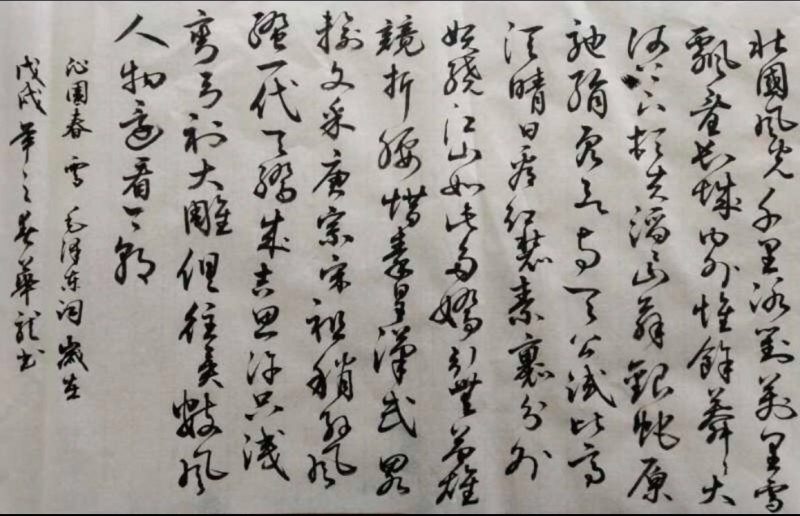 北國風光千里冰封萬里雪
飄望長城內外惟餘莽〻大
河上下頓失滔〻山舞銀蛇原
馳蠟象欲与天公試比高
須晴日看紅裝素裹分外
妖嬈江山如此多嬌引無英雄
競折腰惜秦皇漢武畧
輸文采唐宗宋祖稍遜風
騷一代天驕成吉思汗只識
彎弓射大雕俱往矣數風
人物還看今朝
沁園春 雪 毛澤東詞 歲在
戊戌年之春華龍書